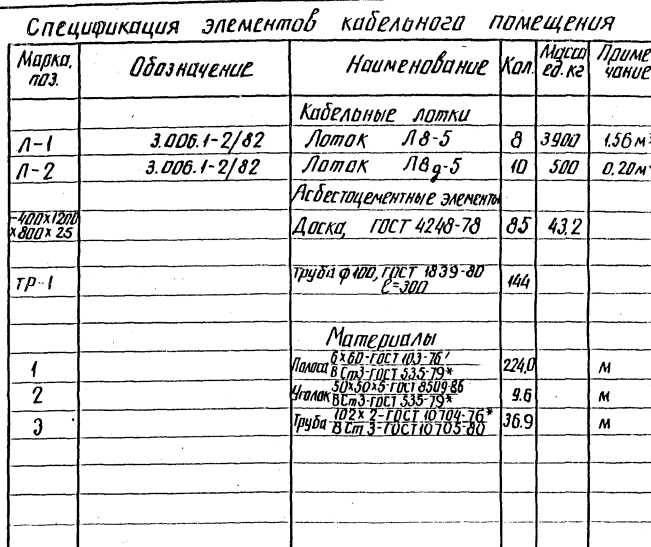 Спецификация элементов кабельного помещения
Марка, поз. Обозначение Наименование Кол. Масса ед.кг Приме чание
Кабельные лотки
Л-1 3.006.1-2/82 Лоток Л8-5 8 3900 1.56м³
Л-2 3.006.1-2/82 Лоток Л8g-5 10 500 0.20м
Асбестоцементные элементы
-400х1200
х800х25 Доска, ГОСТ 4248-78 85 43.2
ТР-1 труба ф100, ГОСТ 1839-80 144
ℓ=300
Материалы
1 Полоса 6х60-ГОСТ 103-76* 224,0 м
ВСт3-ГОСТ 535-79*
2 Уголок 50х50х5-ГОСТ 8509-86 9.6 м
ВСт3-ГОСТ 535-79*
3 Труба 102х2-ГОСТ 10704-76* 36.9 м
ВСт3-ГОСТ 10705-80